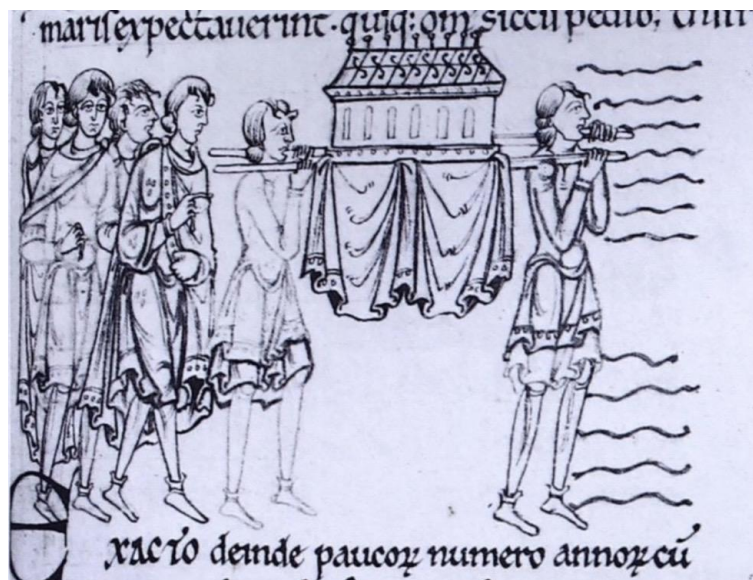 maris expectaverint. quiq; om̅ siccu pedib;
XACTO deinde paucoꝝ numero annoꝝ cū